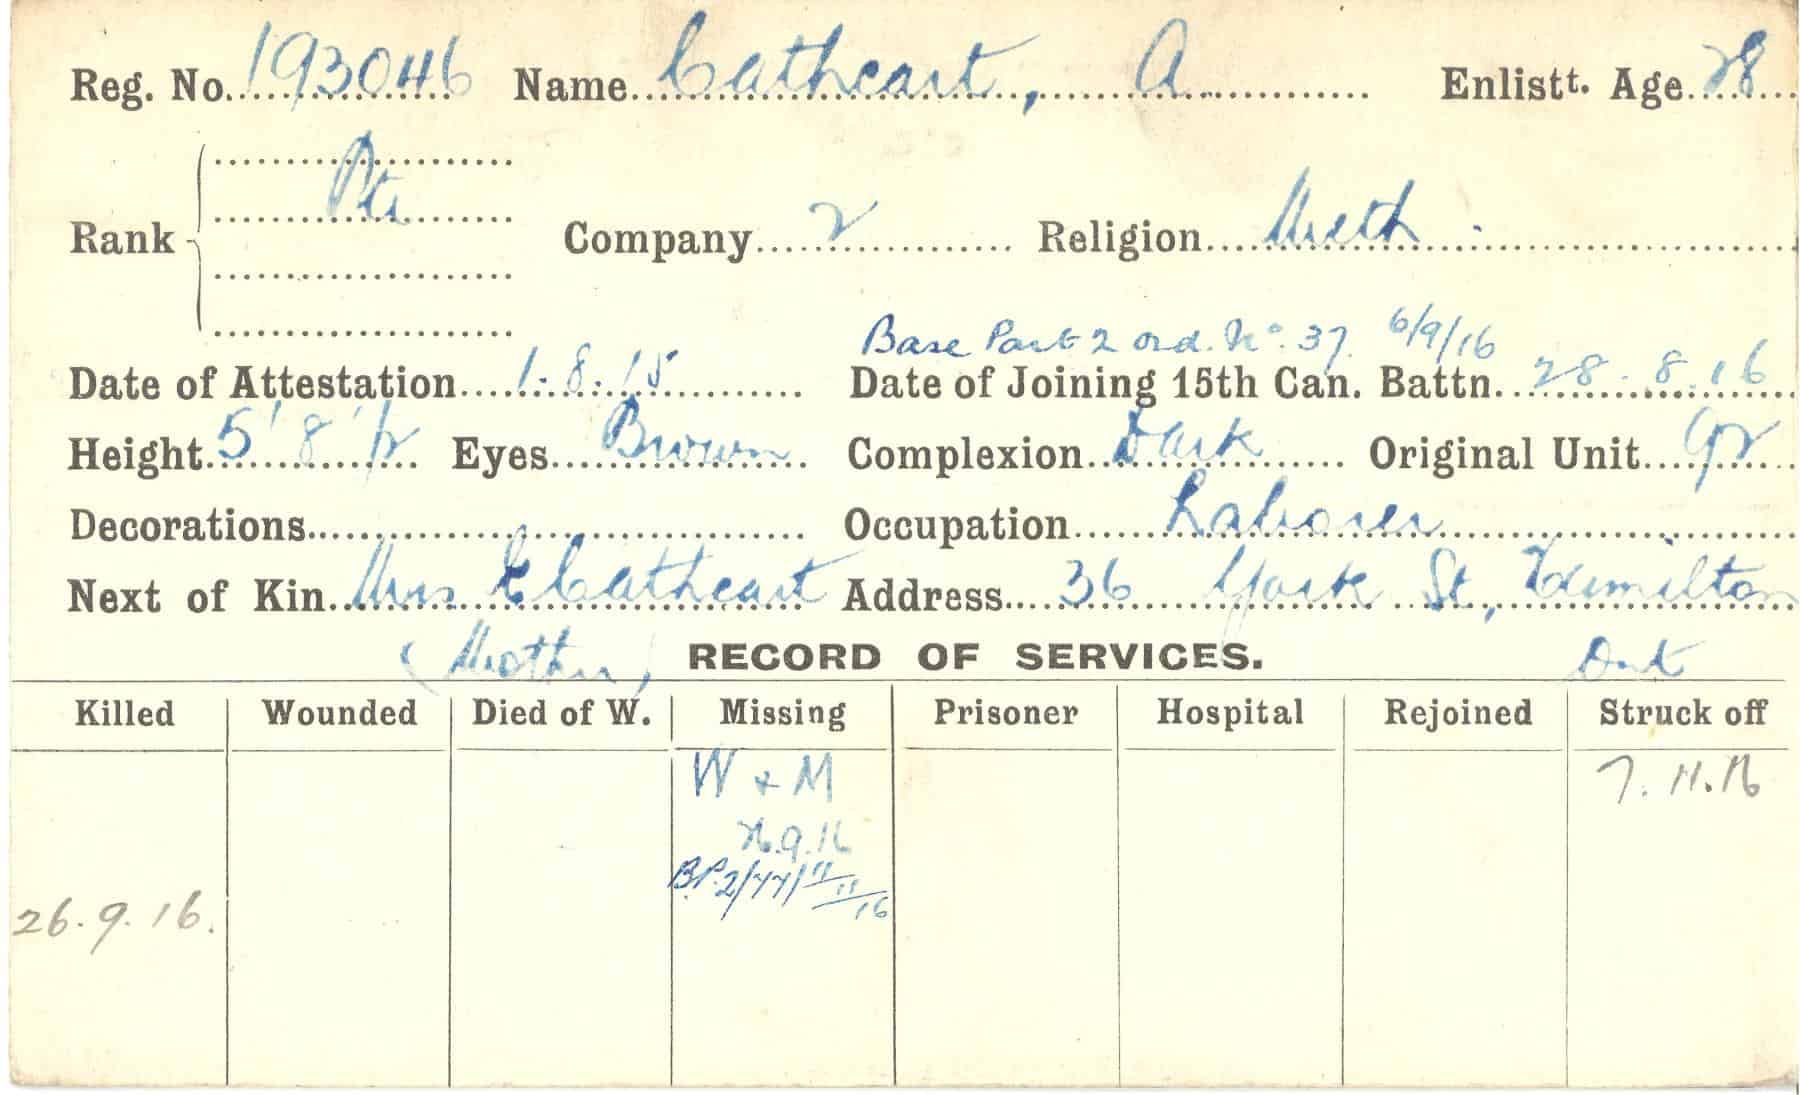 Reg. No. 193046 Name Cathcart, A Enlistt. Age 28
Pte
Rank Company 2 Religion Meth.
Base Part 2 ord. No. 37. 6/9/16
Date of Attestation 1.8.15 Date of Joining 15th Can. Battn. 28.8.16
Height 5' 8 1/2 Eyes Brown Complexion Dark Original Unit 92
Decorations Occupation Laborer
Next of Kin Mrs E Cathcart Address 36 York St, Hamilton
(Mother) RECORD OF SERVICES. Ont
Killed Wounded Died of W. Missing Prisoner Hospital Rejoined Struck off
W & M 7.11.16
26.9.16
B.P.2/77/11/11/16
26.9.16.